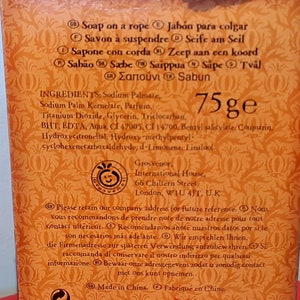 GB Soap on a rope E Jabón para colgar
F Savon à suspendre D Seife am Seil
I Sapone con corda NL Zeep aan een koord
P Sabão DK Sæbe Saippua N Såpe S Tvål
GR Σαπούνι Sabun
INGREDIENTS: Sodium Palmate,
Sodium Palm Kernelate, Parfum,
Titanium Dioxide, Glycerin, Triclocarban,
BHT, EDTA, Aqua, CI 47005, CI 14700, Benzyl salicylate, Coumarin,
Hydroxycitronellal, Hydroxy-methylpentyl-
cyclohexenecarboxaldehyde, d-Limonene, Linalool
75g e
Grosvenor,
International House,
66 Chiltern Street,
London, W1U 4JT, U.K.
GB Please retain our company address for future reference. F Nous
vous recommandons de prendre note de notre adresse pour tout
contact ultérieur. E Recomendamos anote nuestros datos por si le
son necesarios más adelante. D Wir empfehlen Ihnen,
die Firmenadresse zur späteren Verwendung aufzubewahren. I Si
raccomanda di conservare il nostro indirizzo per qualsiasi
informazione. NL Bewaar ons adresgegevens zodat u zonodig contact
met ons kunt opnemen.
GB Made in China. F Fabriqué en Chine.